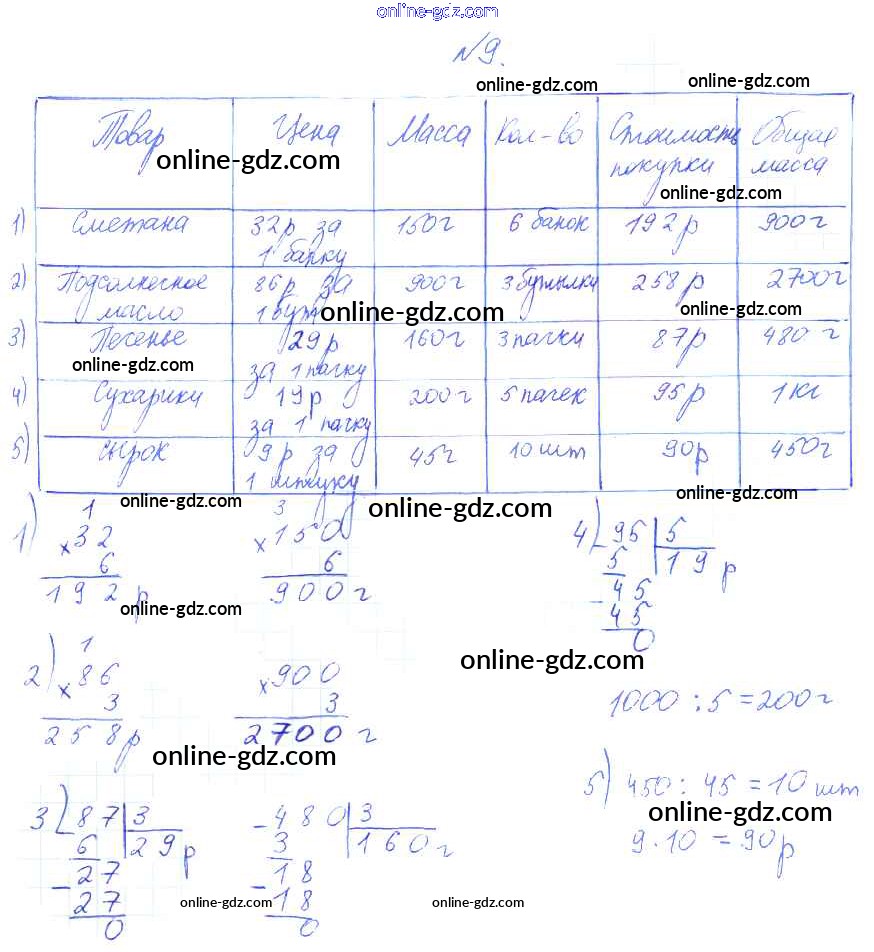 online-gdz.com
№9.
online-gdz.com online-gdz.com
Товар Цена Масса Кол-во Стоимость покупки Общая масса
online-gdz.com
online-gdz.com
1) Сметана 32р за 1 банку 150г 6 банок 192р 900г
2) Подсолнечное масло 86р за 1 бут 900г 3 бутылки 258р 2700г
online-gdz.com online-gdz.com
3) Печенье 29р за 1 пачку 160г 3 пачки 87р 480г
online-gdz.com
4) Сухарики 19р за 1 пачку 200г 5 пачек 95р 1кг
online-gdz.com
5) сырок 9р за 1 штуку 45г 10шт 90р 450г
online-gdz.com
online-gdz.com online-gdz.com
1) 1 3 4) 95 5
×32 ×150 5 19р
6 6 -45
192р 900г 45
online-gdz.com online-gdz.com
0
online-gdz.com
2) 1
×86 ×900
3 3 1000 : 5 = 200г
258р 2700г
online-gdz.com
5) 450 : 45 = 10шт
online-gdz.com
9 · 10 = 90р
3) 87 3 -480 3
6 29р 3 160г
-27 18
27 -18
0 0
online-gdz.com online-gdz.com